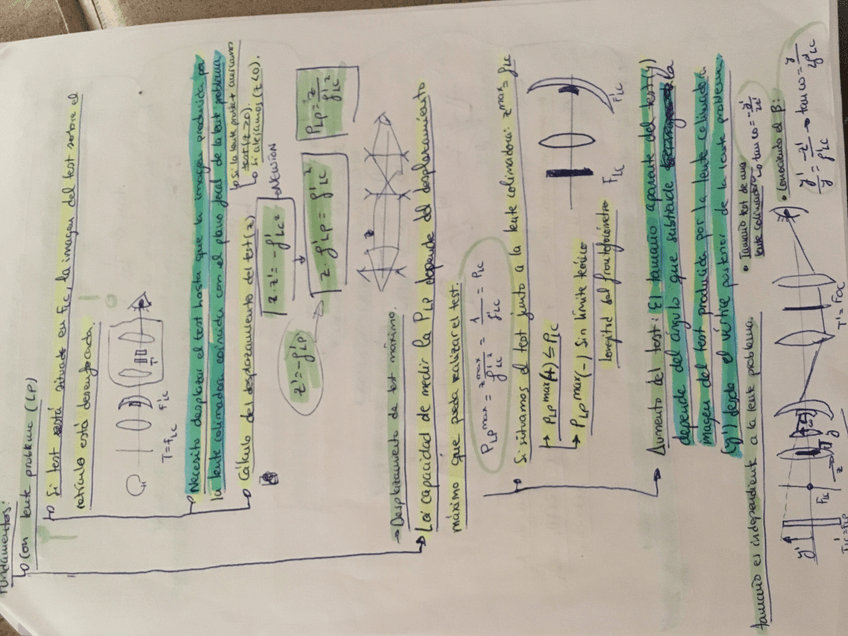 Fundamentos:
↳ Con lente problema (LP)
↳ Si test está situado en FLC, la imagen del test sobre el
retículo está desenfocada.
T = FLC
F'LC
↳ Necesito desplazar el test hasta que la imagen producida por
la lente colimadora coincida con el plano focal de la lente problema
↳ Cálculo del desplazamiento del test (z)
↳ Si la lente prob + acercamos
test (z>0)
↳ Si alejamos (z<0).
z·z' = -f'LC² → NEWTON
z' = -f'LP
z·f'LP = f'LC²
PLP = z / f'LC²
z
→ Desplazamiento de test máximo.
↳ La capacidad de medir la PLP depende del desplazamiento
máximo que pueda realizar el test.
PLP max = z max / f'LC² = 1 / f'LC = PLC
↳ Si situamos el test junto a la lente colimadora: z max = fLC
↳ PLP max (+) ≤ PLC
↳ PLP max (-) Sin límite teórico
Longitud del frontofocómetro
FLC
F'LC
→ Aumento del test: El tamaño aparente del test (y)
depende del ángulo que subtiende la
imagen del test producida por la lente colimadora
(y') desde el vértice posterior de la lente problema
• Tamaño test de una
lente colimadora
tamaño es independiente a la lente problema.
• Conociendo el β:
y'/y = -z'/f'LC → tan ω = y/f'LC
y'
FLC
z
y